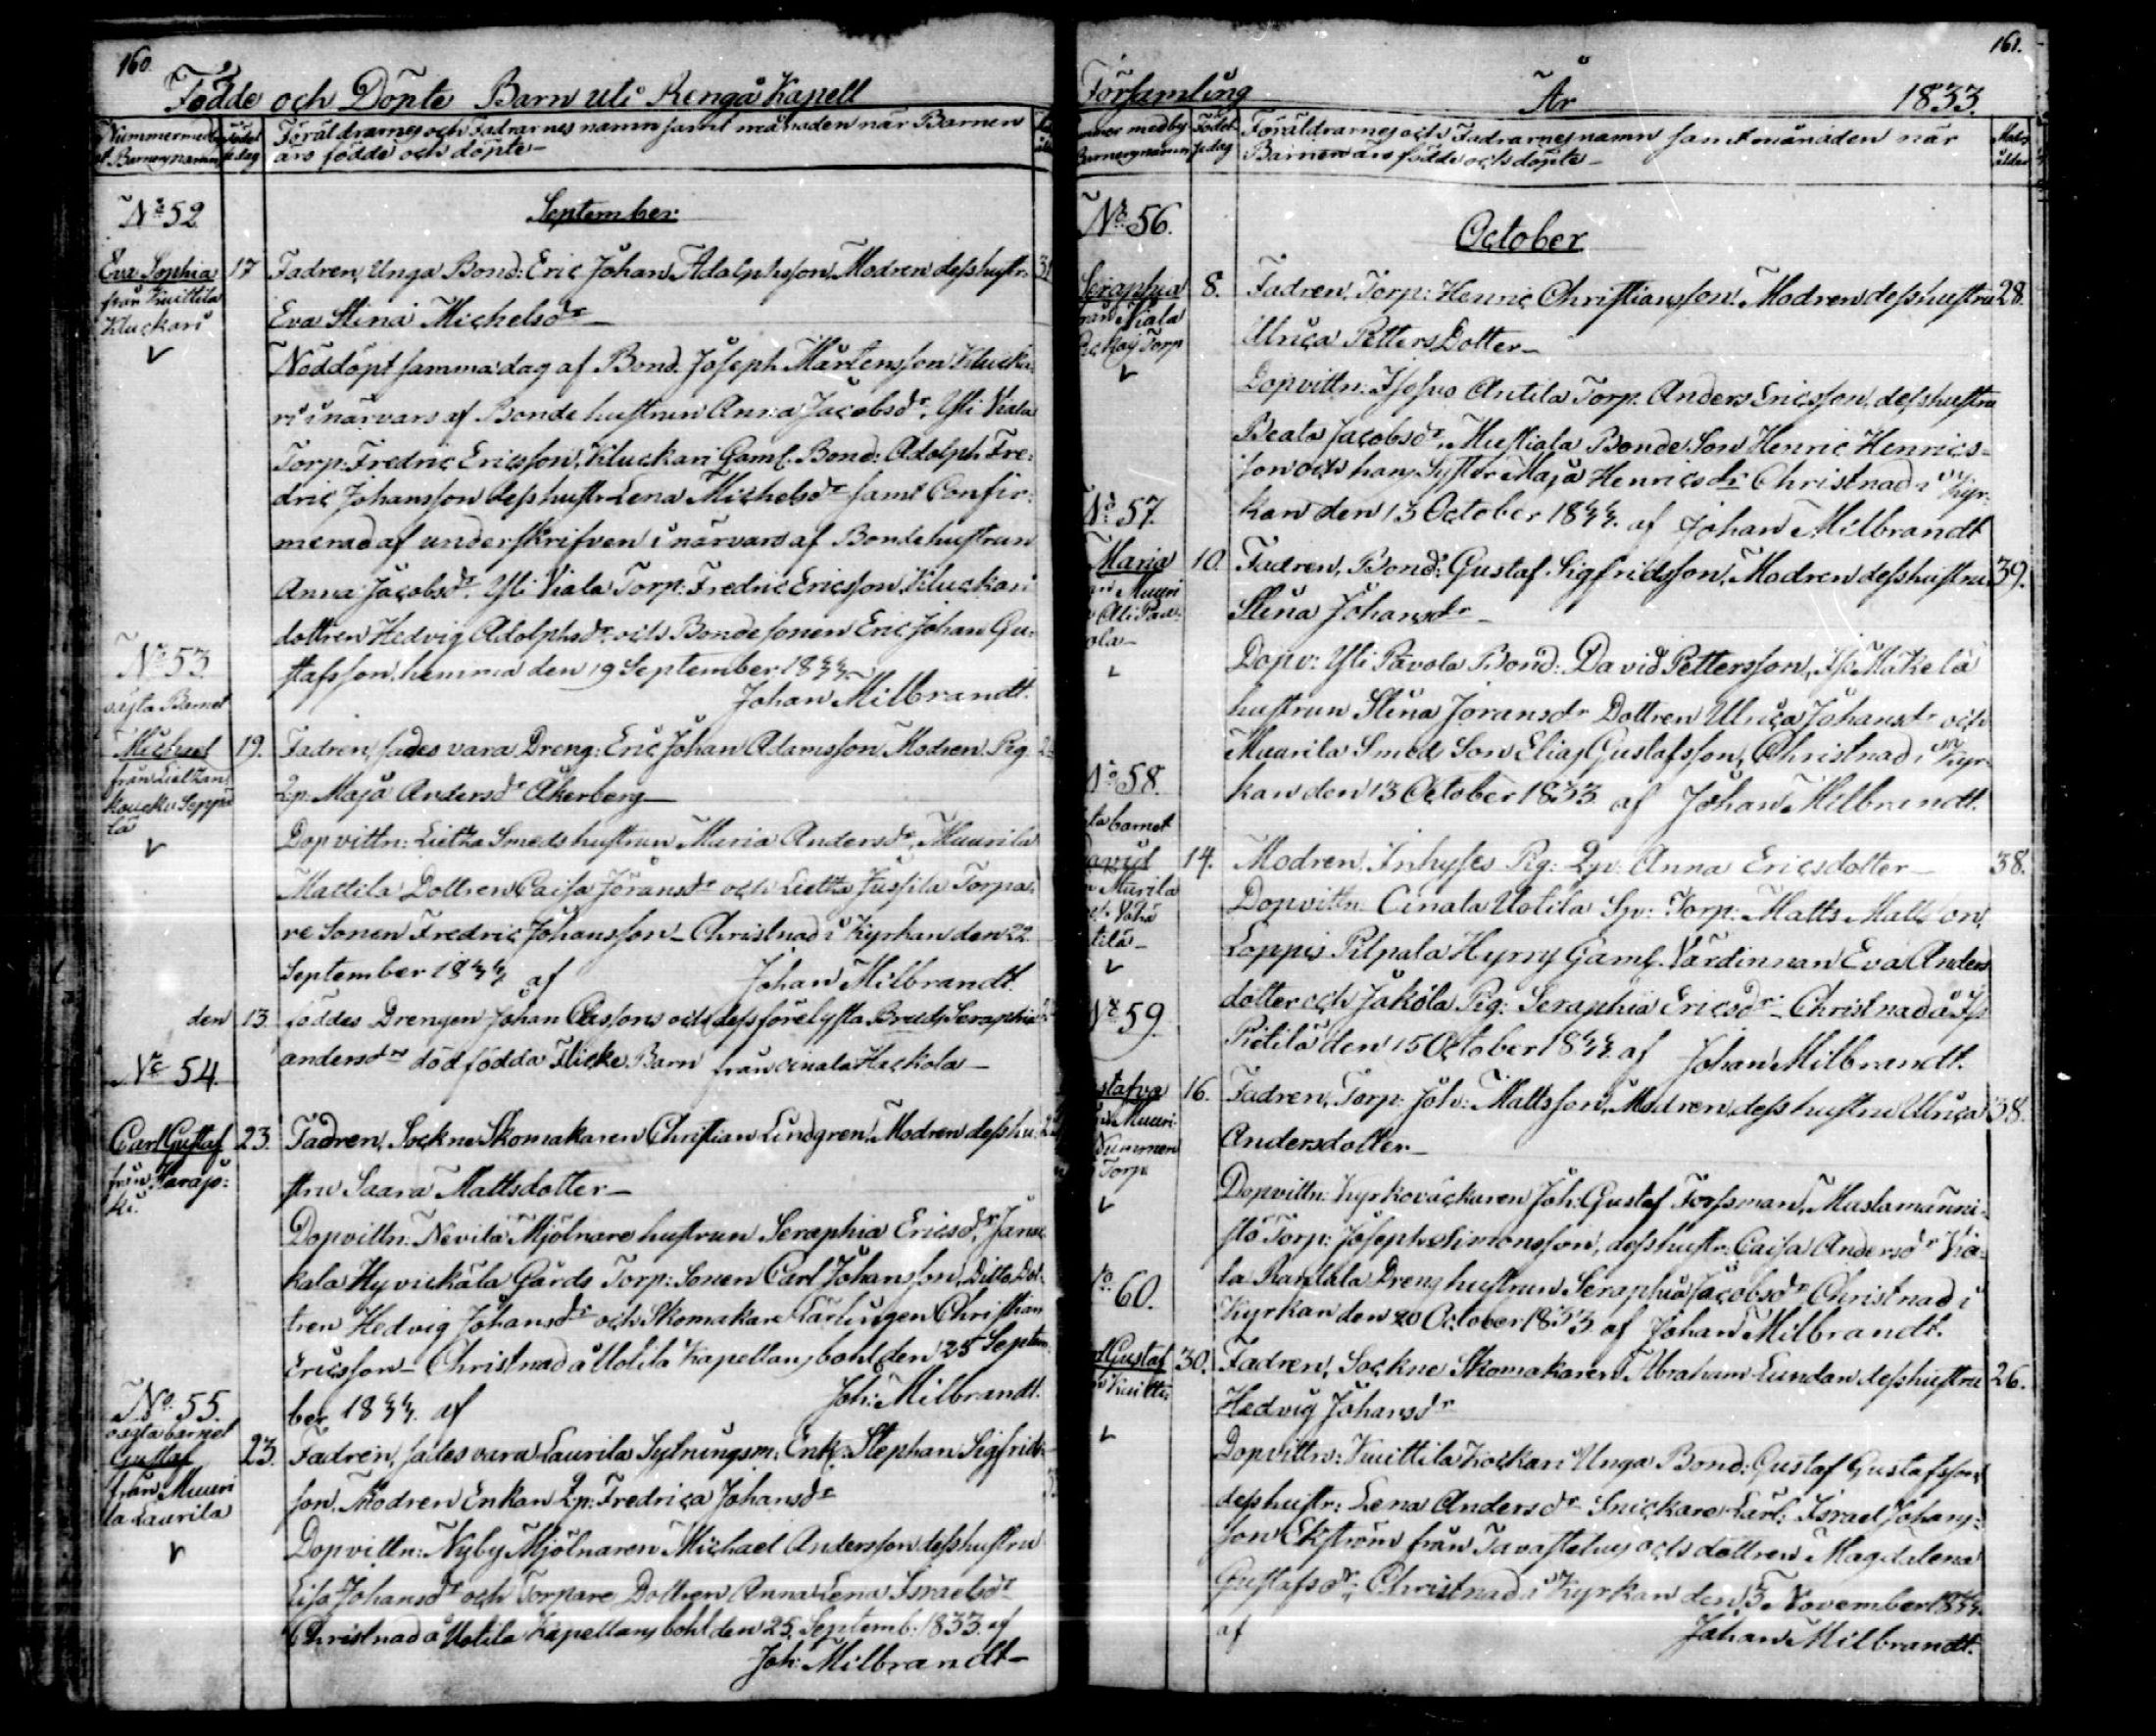 160.
Födde och Döpte Barn uti Rengå Kapell
Nummer med by
et Barnens namn
Födel
sedag
Föräldrarnes och Fadrarnes namn samt månaden när Barnen
äro födde och döpte
September
No 52.
Eva Sophia
från Kuittila
Kluckari
17
Fadren, Unga Bond: Eric Johan Adolphsson, Modren dess hustr:
Eva Stina Michelsdr
Nöddöpt samma dag af Bond. Joseph Mårtensson Klucka-
ri i närvaro af Bonde hustrun Anna Jacobsdr, Yli Viala
Torp: Fredric Ericsson, Kluckari Gaml. Bond: Adolph Fre-
dric Johansson dess hustr Lena Michelsdr samt Confir-
merad af underskrifven i närvaro af Bondehustrun
Anna Jacobsdr. Yli Viala Torp: Fredric Ericsson, Kluckari
dottren Hedvig Adolphsdr och Bondesonen Eric Johan Gu-
stafsson, hemma den 19 September 1833.
Johan Milbrandt.
No 53.
oägta Barnet
Michael
från Lietzan
koucku Seppä
lä
19.
Fadren, sades vara Dreng: Eric Johan Adamsson Modren Pig.
Lp. Maja Andersdr Åkerberg
Dopvittn: Lietza Smeds hustrun Maria Andersdr, Muurila
Mattila Dottren Caisa Jöransdr och Lietza Jussila Torpa-
re Sonen Fredric Johansson Christnad i Kyrkan den 22
September 1833 af Johan Milbrandt.
den 13. föddes Drengen Johan sons och dess förelysta Brud Seraphia
andersdrs dödfödda Flicke Barn från Hackola
No 54.
Carl Gustaf
från Harajo-
ki.
23.
Fadren, Sockne Skomakaren Christian Lindgren, Modren dess hu-
stru Saara Mattsdotter
Dopvittn: Nevilä Mjölnare hustrun Seraphia Ericsdr, Janac
kala Hyvickälä Gårds Torp: Sonen Carl Johansson, Ditto Dot-
tren Hedvig Johansdr och Skomakare Lärlingen Christian
Ericsson Christnad å Uotila Kapellans bohl den 25 Septem-
ber 1833. af Joh: Milbrandt.
No 55.
oägta barnet
Gustaf
från Muuri
la Laurila
23.
Fadren, sades vara Laurila Sytnungsm: Enkl. Stephan Sigfrids-
son. Modren Enkan Lp: Fredrica Johansdr
Dopvittn: Nyby Mjölnaren Michael Andersson dess hustru
Lisa Johansdr och Torpare Dottren Anna Lena Israelsdr
Christnad å Uotila Kapellans bohl den 25 Septemb. 1833. af
Joh: Milbrandt
161.
Församling År 1833.
med by
Barnens namn
Födel
sedag
Föräldrarnes och Fadrarnes namn samt månaden när
Barnen äro födde och döpte
ålder
October
No 56.
Seraphia
från Niala
Torp
8.
Fadren, Torp: Henric Christiansson, Modren dess hustru 28.
Ulrica Petters Dotter
Dopvittn: Antila Torp. Anders Ericsson, dess hustru
Beata Jacobsdr, Mustiala Bonde Son Henric Henrics-
son och hans Syster Maja Henricsdr Christnad i Kyr-
kan den 13 October 1833. af Johan Milbrandt
No 57.
Maria
Muuri
10.
Fadren, Bond: Gustaf Sigfridsson, Modren dess hustru 39.
Stina Johansdr
Dopv: Yli Pavola Bond: David Pettersson, Iso Mikelä
hustrun Stina Jöransdr Dottren Ulrica Johansdr och
Muurila Smeds Son Elias Gustafsson, Christnad i Kyr-
kan den 13 October 1833. af Johan Milbrandt.
No 58.
ta barnet
David
Murila
tilä
14.
Modren, Inhyses Pig: Lp: Anna Ericsdotter 38.
Dopvittn: Uotila Torp: Matts Mattsson,
Loppis Pilpala Hyrry Gaml. Värdinnan Eva Anders
dotter och Jakola Pig: Seraphia Ericsdr Christnad å Iso
Pietilä den 15 October 1833. af Johan Milbrandt.
No 59.
stafva
Muuri
Nummen
Torp
16.
Fadren, Torp: Joh: Mattsson, Modren, dess hustru Ulrica 38.
Andersdotter
Dopvittn: Kyrkoväckaren Joh: Gustaf Forssman, Mustamänni-
stö Torp: Joseph Simonsson, dess hustr: Caisa Andersdr Via-
la Rantala Dreng hustrun Seraphia Jacobsdr Christnad i
Kyrkan den 20 October 1833 af Johan Milbrandt.
60.
Gustaf
Kuitti
30.
Fadren, Sockne Skomakaren Abraham Lundan dess hustru 26.
Hedvig Johansdr
Dopvittn: Kuittila Kockari Unga Bond: Gustaf Gustafsson,
dess hustr: Lena Andersdr Snickare Lärl: Israel Johans-
son Ekström från Tavastehus och dottren Magdalena
Gustafsdr, Christnad i Kyrkan den 3 November 1833.
af Johan Milbrandt.